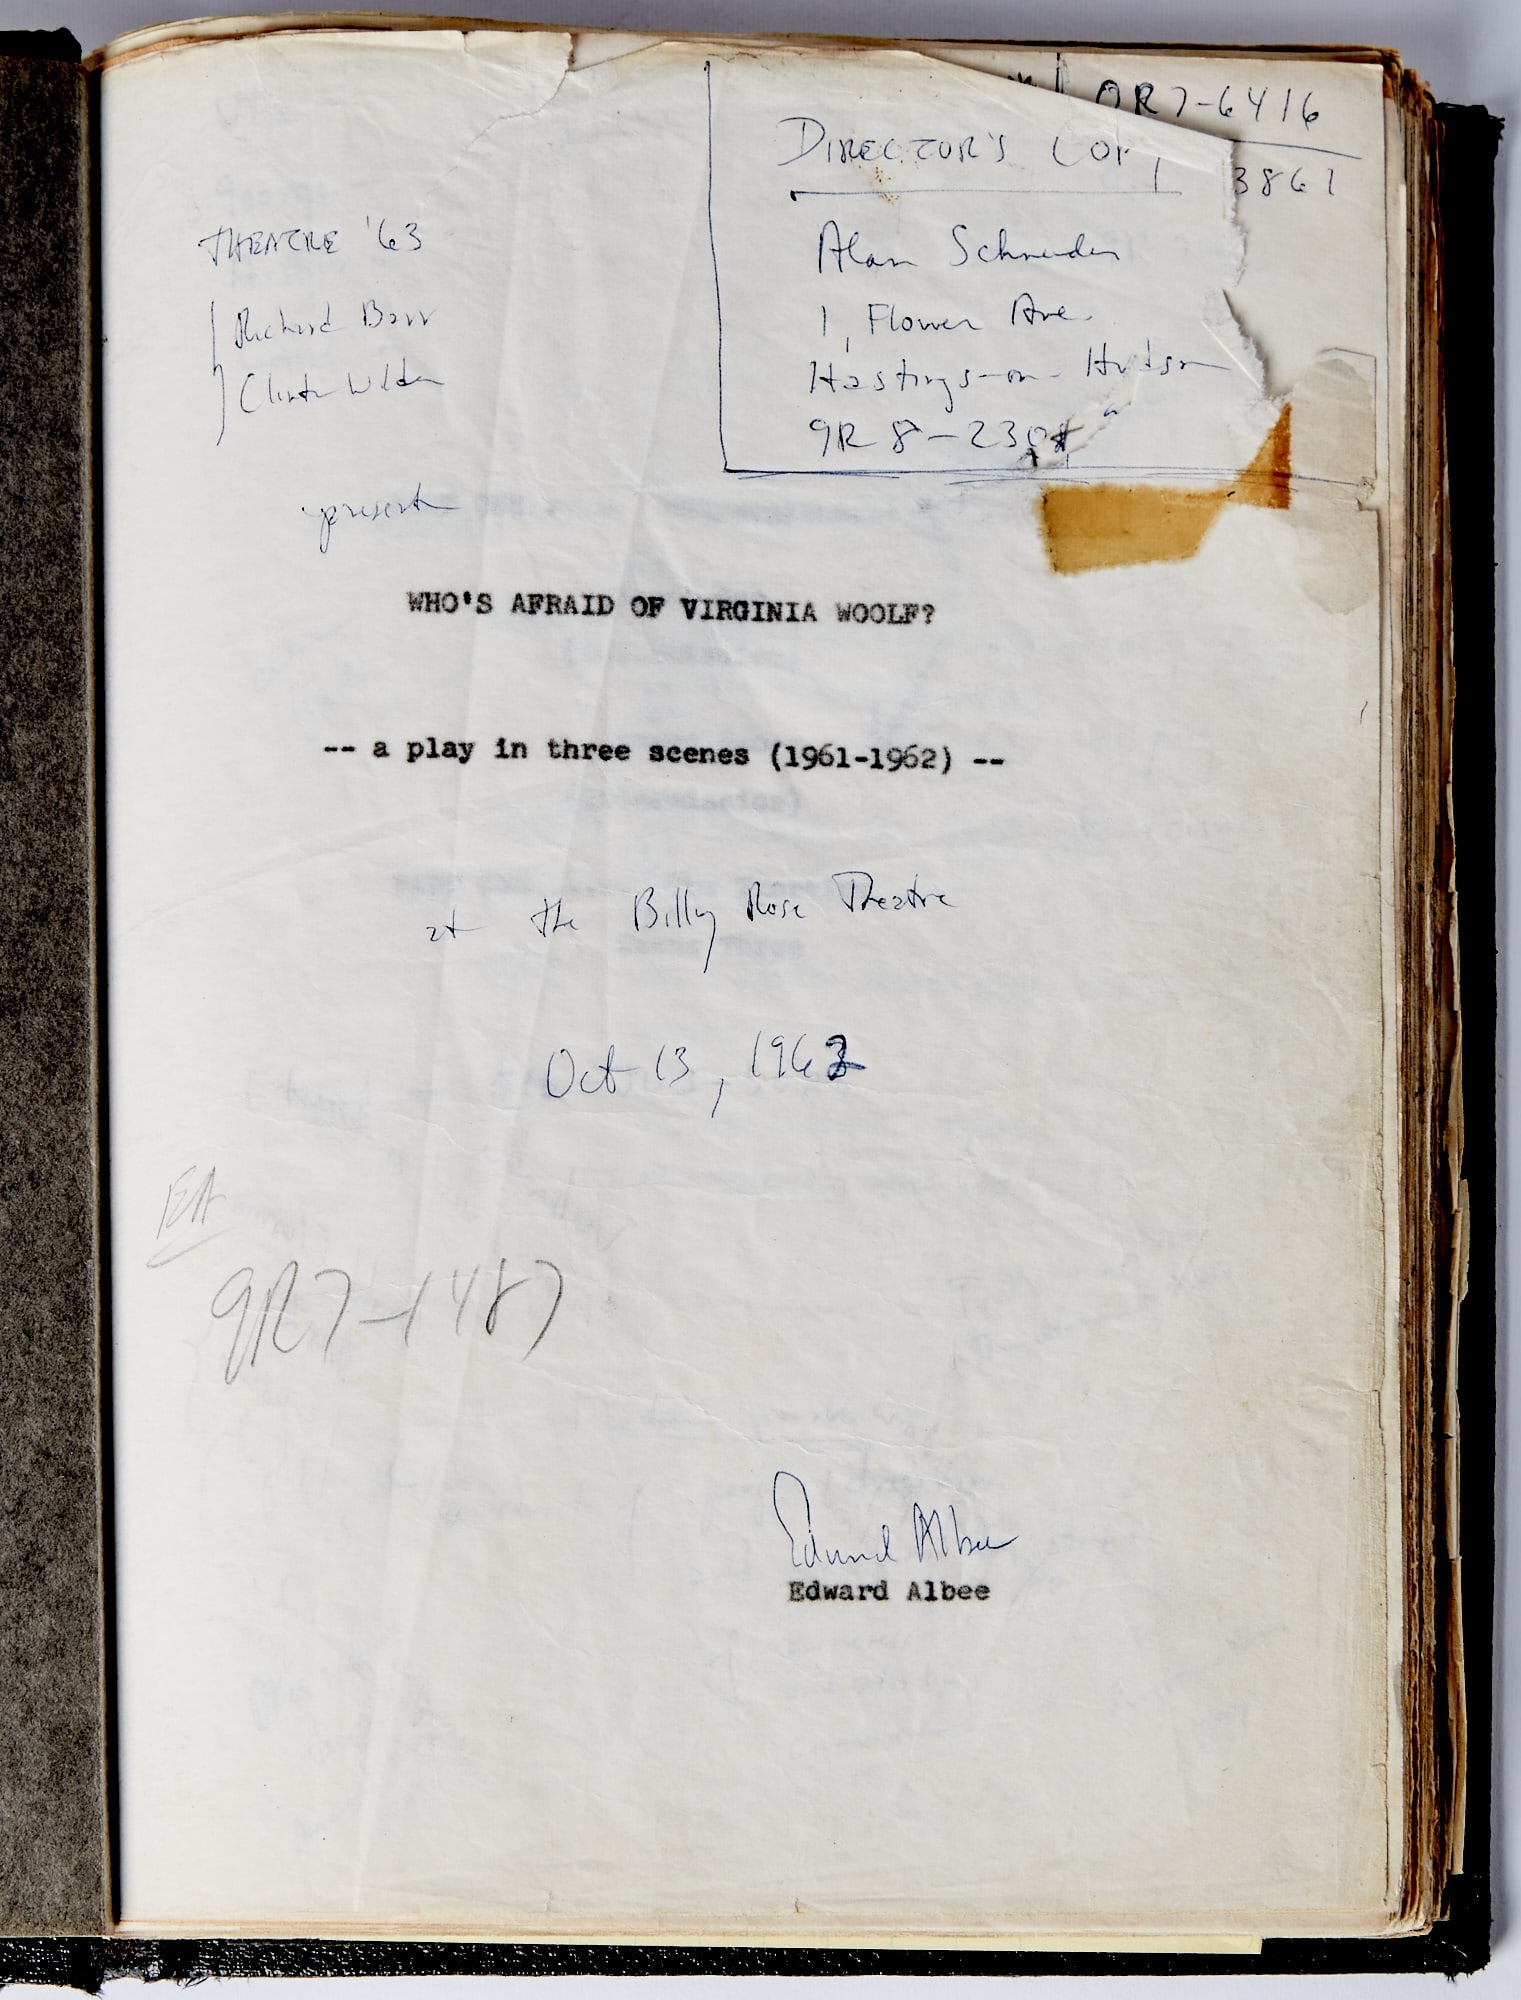 OR7-6416
DIRECTOR'S COPY
3861
THEATRE '63
Alan Schneider
Richard Barr
1, Flower Ave.
Clinton Wilder
Hastings-on-Hudson
GR 8-23
present
WHO'S AFRAID OF VIRGINIA WOOLF?
-- a play in three scenes (1961-1962) --
at the Billy Rose Theatre
Oct 13, 1962
EA
GR7-1487
Edward Albee
Edward Albee